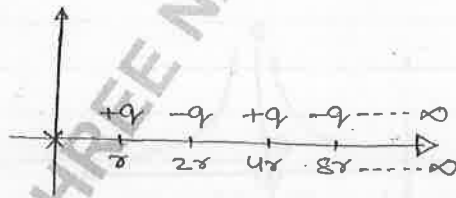 +q -q +q -q ---- ∞
r 2r 4r 8r ---- ∞